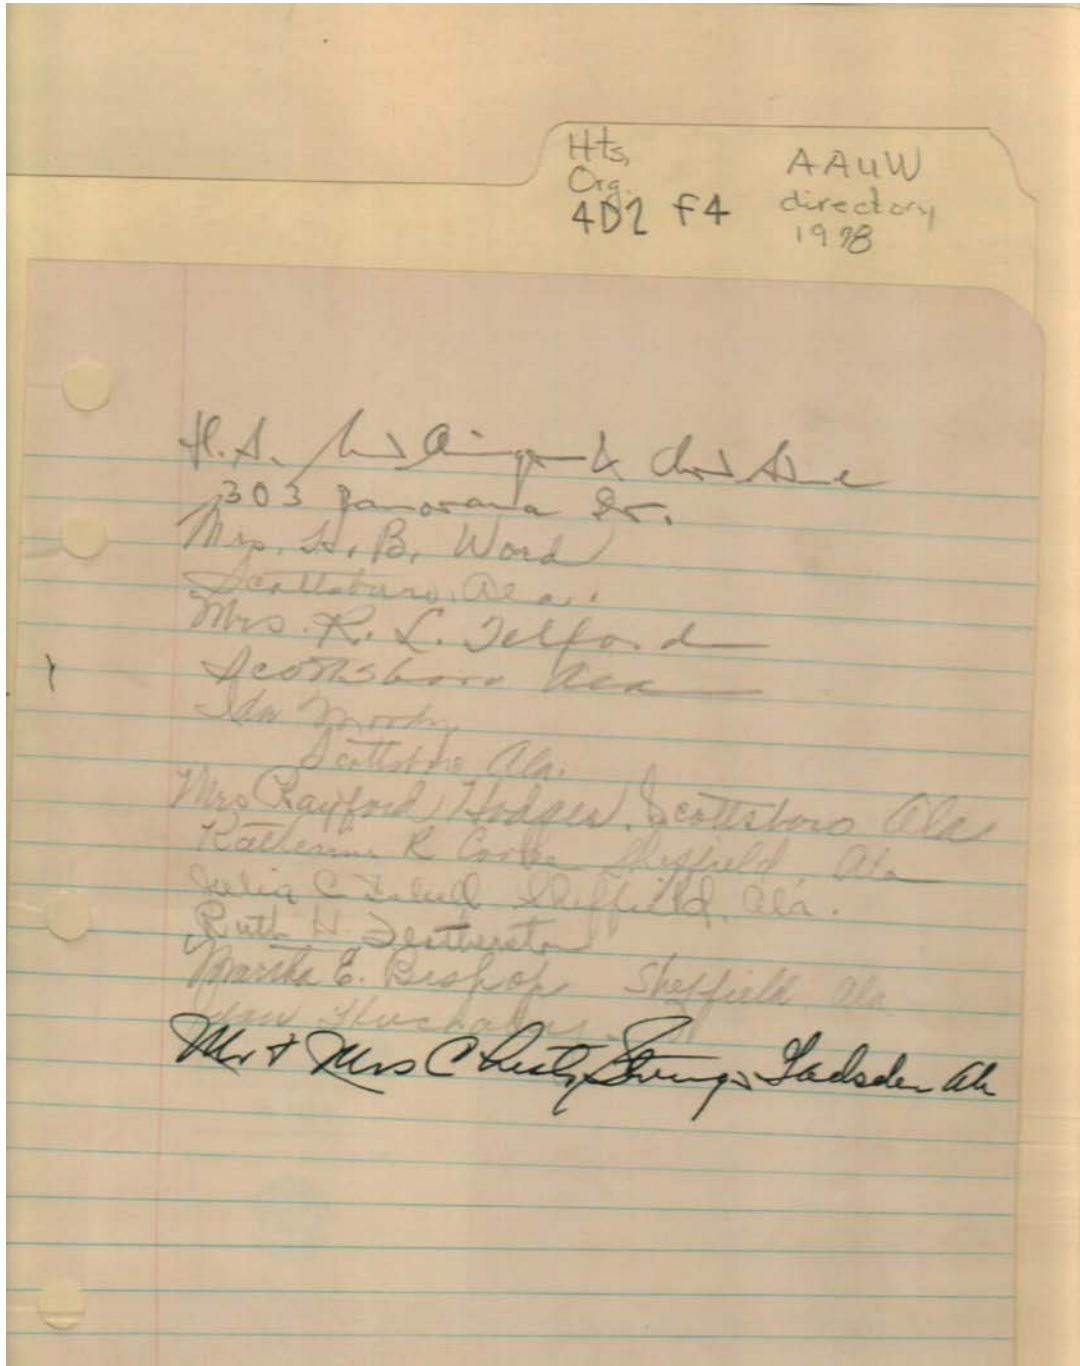 Hts,
Org.
4D2 F4
AAUW
directory
1978
H.S.
303 Panorama Dr.
Mrs. H. B. Word
Scottsboro, Ala.
Mrs. R. L. Telford
Scottsboro Ala
Ida Moody
Scottsboro Ala.
Mrs Rayford Hodges, Scottsboro Ala
R Sheffield, Ala
Julia C Sheffield, Ala.
Ruth H. Featherston
Martha E. Bishop Sheffield Ala
Mr & Mrs Gadsden Ala